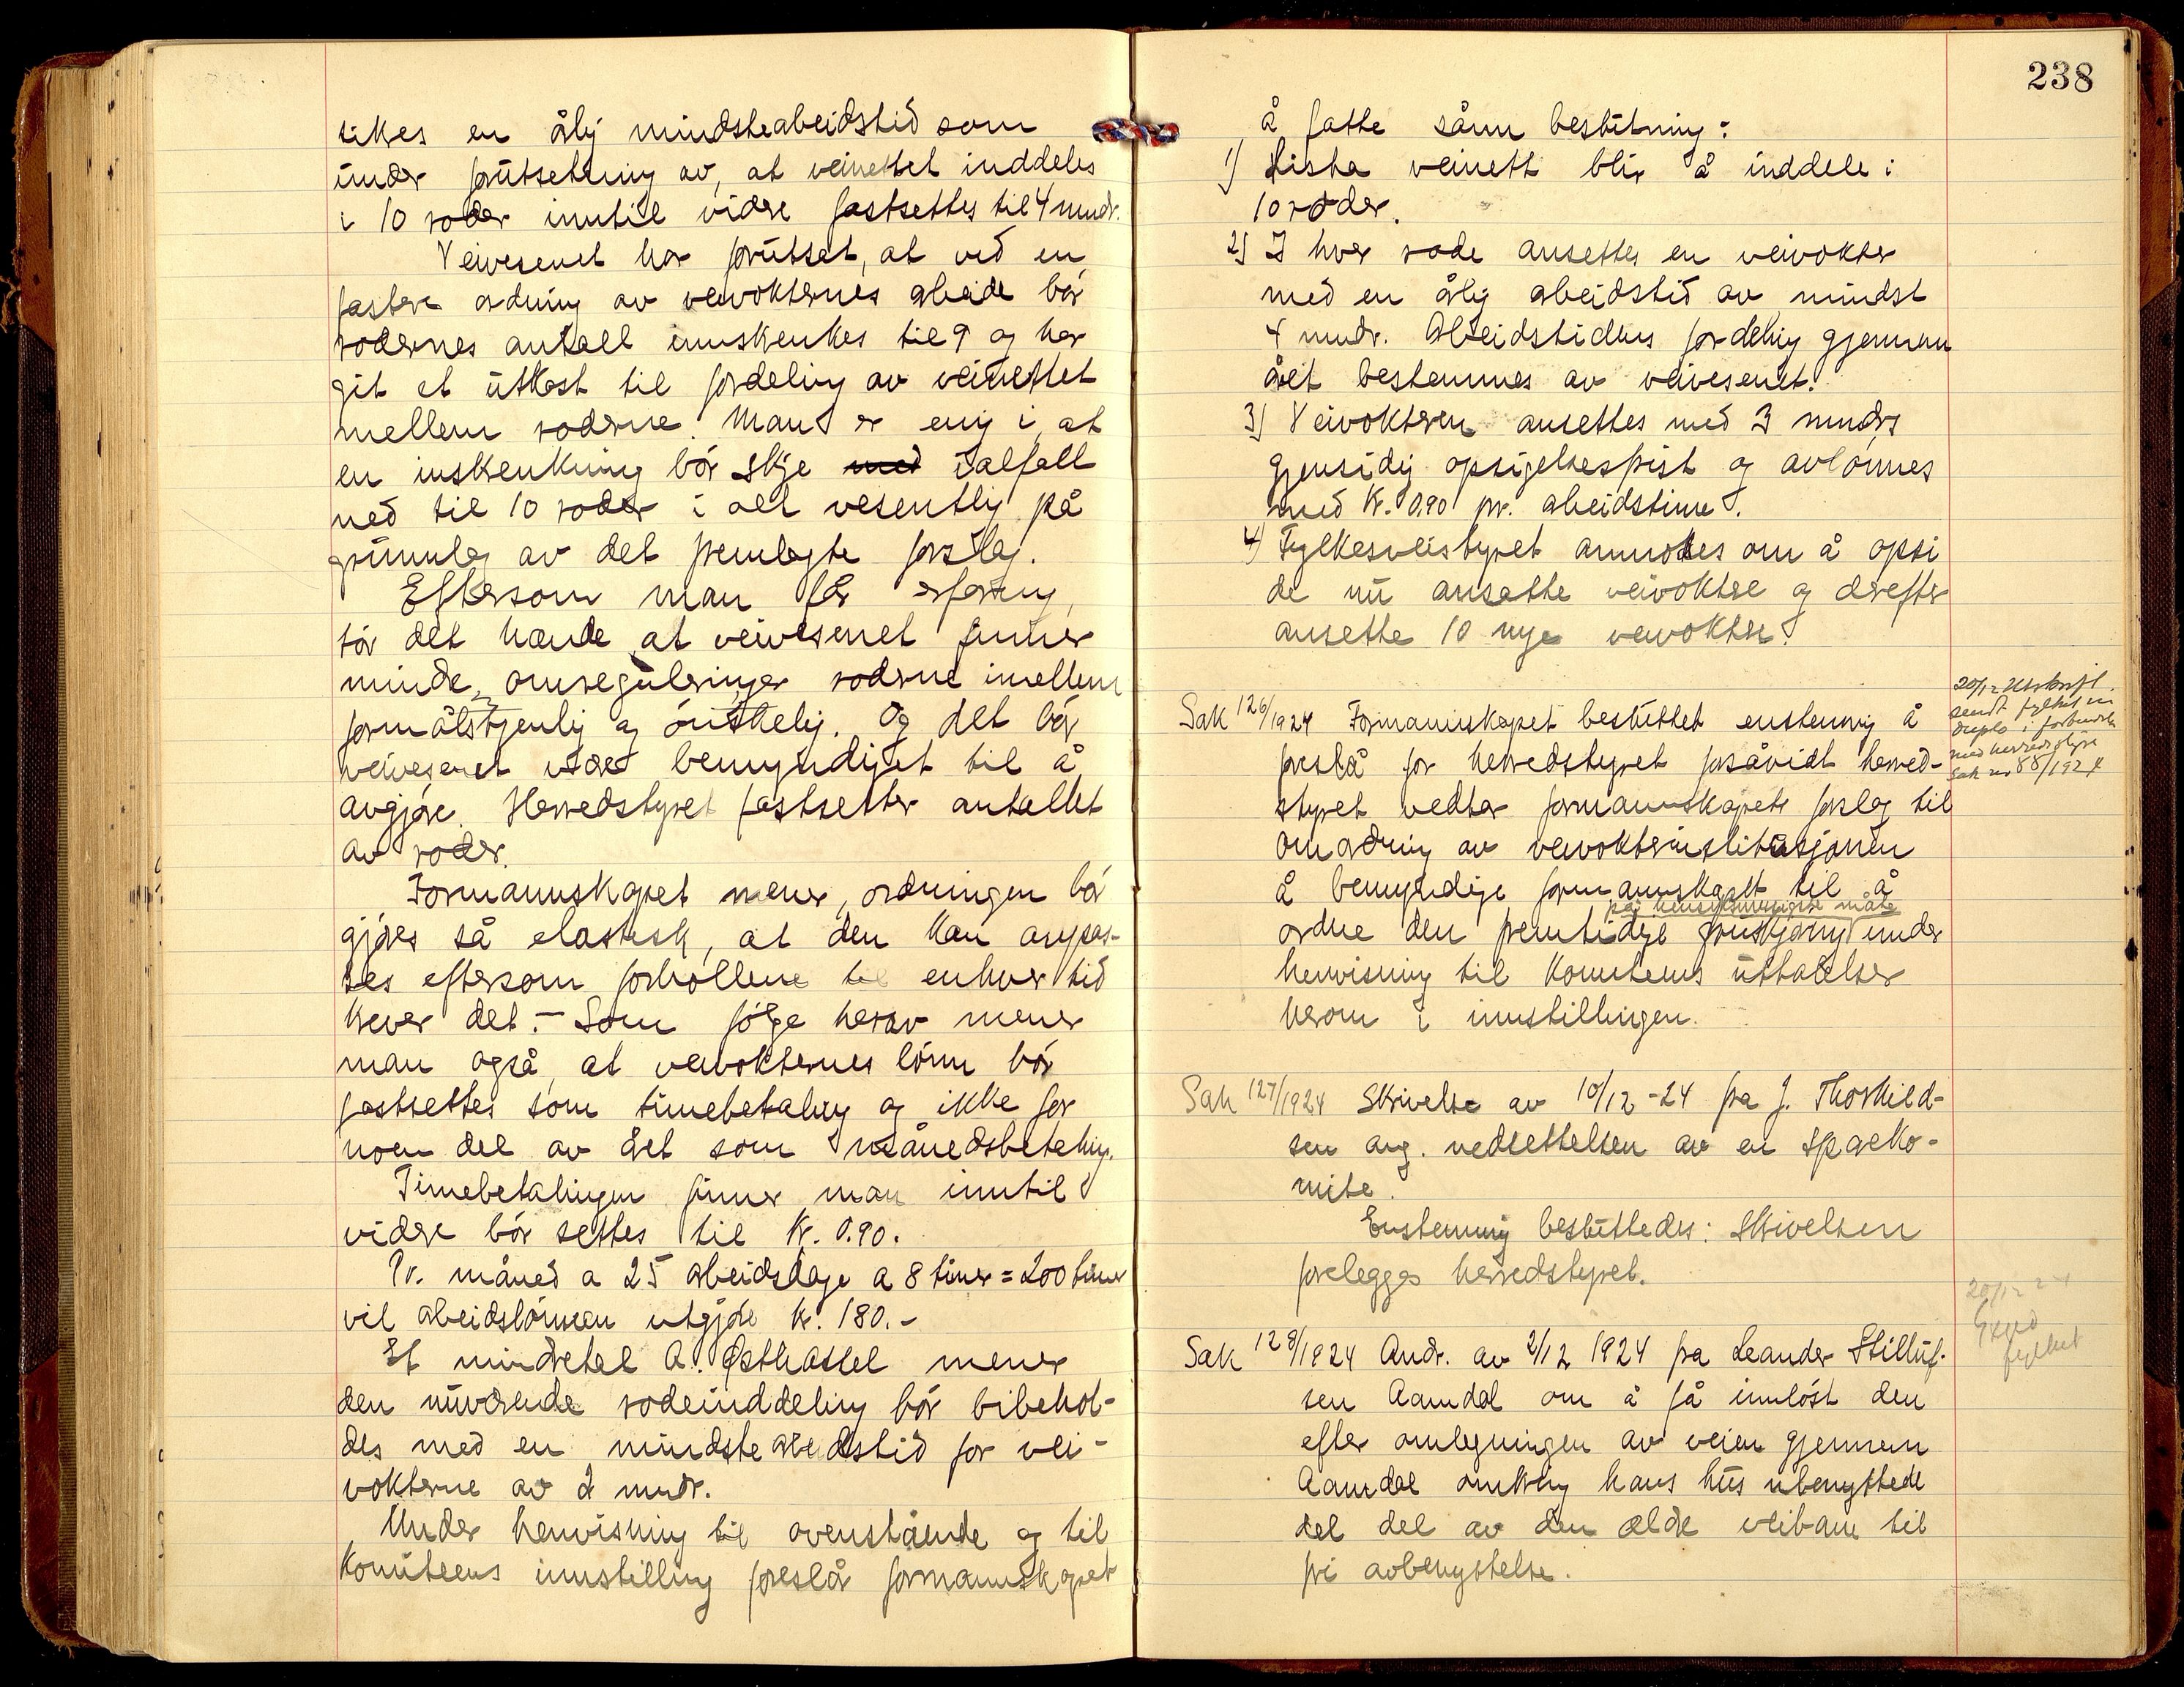 sikres en årlig mindstearbeidstid som
under forutsetning av, at veinettet inddeles
i 10 roder inntil videre fastsettes til 4 mndr.
Veivesenet har forutset, at ved en
fastere ordning av veivokternes arbeide bør
rodernes antall innskrenkes til 9 og har
git et utkast til fordeling av veinettet
mellem roderne. Man er enig i, at
en inskrenkning bør skje med ialfall
ned til 10 roder i alt vesentlig på
grunnlag av det fremlagte forslag.
Eftersom man får erfaring,
tør det hænde, at veivesenet finner
mindre omreguleringer roderne imellem
formålstjenlig og ønskelig. Og det bør
veivesenet være bemyndiget til å
avgjøre. Herredstyret fastsetter antallet
av roder.
Formannskapet mener, ordningen bør
gjøres så elastisk, at den kan anpas-
ses eftersom forhollene til enhver tid
krever det. - Som følge herav mener
man også, at veivokternes lønn bør
fastsettes som timebetaling og ikke for
noen del av året som månedsbetaling.
Timebetalingen finner man inntil
videre bør settes til Kr. 0.90.
Pr. måned a 25 arbeidsdage a 8 timer = 200 timer
vil arbeidslønnen utgjøre kr. 180.-
Et mindretal A. Østhassel mener
den nuværende rodeinddeling bør bibehol-
des med en mindste arbeidstid for vei-
vokterne av 2 mndr.
Under henvisning til ovenstående og til
komiteens innstilling foreslår formannskapet
238
å fatte sånn beslutning:
1) Lista veinett blir å inddele i
10 roder.
2) I hver rode ansettes en veivokter
med en årlig arbeidstid av mindst
4 mndr. Arbeidstidens fordeling gjennem
året bestemmes av veivesenet.
3) Veivokteren ansettes med 3 mndrs
gjensidig opsigelsesfrist og avlønnes
med Kr. 0.90 pr. arbeidstime.
4) Fylkesveistyret anmodes om å opsi
de nu ansatte veivoktere og derefter
ansette 10 nye veivoktere.
20/12 Utskrift
sendt fylket in
duplo i forbindelse
med herredsstyre
sak nr 88/1924
Sak 126/1924 Formannskapet besluttet enstemmig å
foreslå for herredstyret forsåvidt herred-
styret vedtar formannskapets forslag til
omordning av veivokterinstitusjonen
å bemyndige formannskapet til å
på hensiktsmessigste måte
ordne den fremtidige gruskjøring under
henvisning til komiteens uttalelser
herom i innstillingen.
Sak 127/1924 Skrivelse av 10/12-24 fra J. Thorkild-
sen ang. nedsettelsen av en spareko-
mite.
Enstemmig besluttedes: Skrivelsen
forelegges herredstyret.
20/12 24
Exped
fylket
Sak 128/1924 Andr. av 2/12 1924 fra Leander Stilluf-
sen Aamdal om å få innløst den
efter omlegningen av veien gjennem
Aamdal omkring hans hus ubenyttede
del del av den ældre veibane til
fri avbenyttelse.